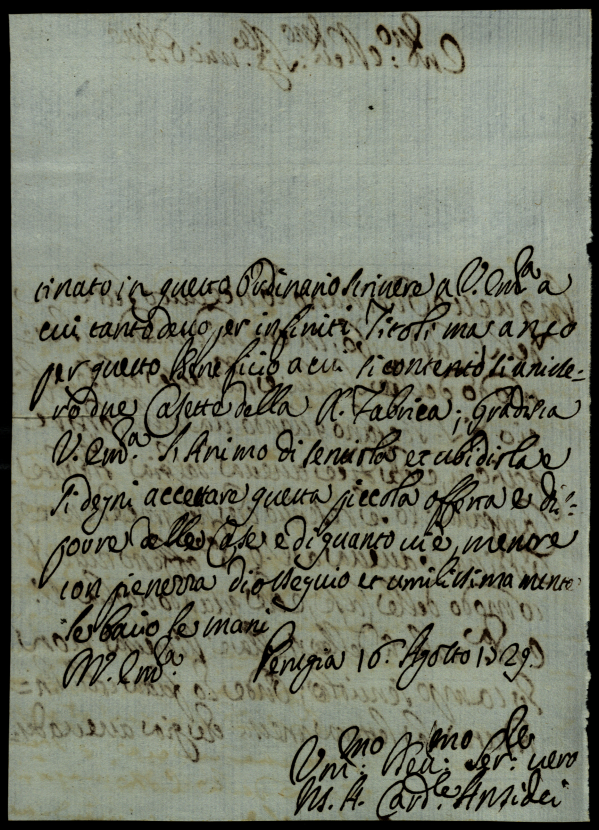 cinato in questo Ordinario scrivere a V. Em.ᵃ a
cui tanto devo per infiniti Titoli ma anco
per questo Beneficio a cui si contentò si unisse-
ro due Casette della R. Fabrica; Gradisca
V. Em.ᵃ l'Animo di servirla et ubidirla e
si degni accettare questa piccola offerta e dis-
porre delle Case e di quanto vi è, mentre
con pienezza di ossequio et umilissimamente
le bacio le mani
V. Em.ᵃ Perugia 16 Agosto 1729.
Um.ᵐᵒ Dev.ᵐᵒ Ser.ʳᵉ vero
M. A. Card.ˡᵉ Ansidei